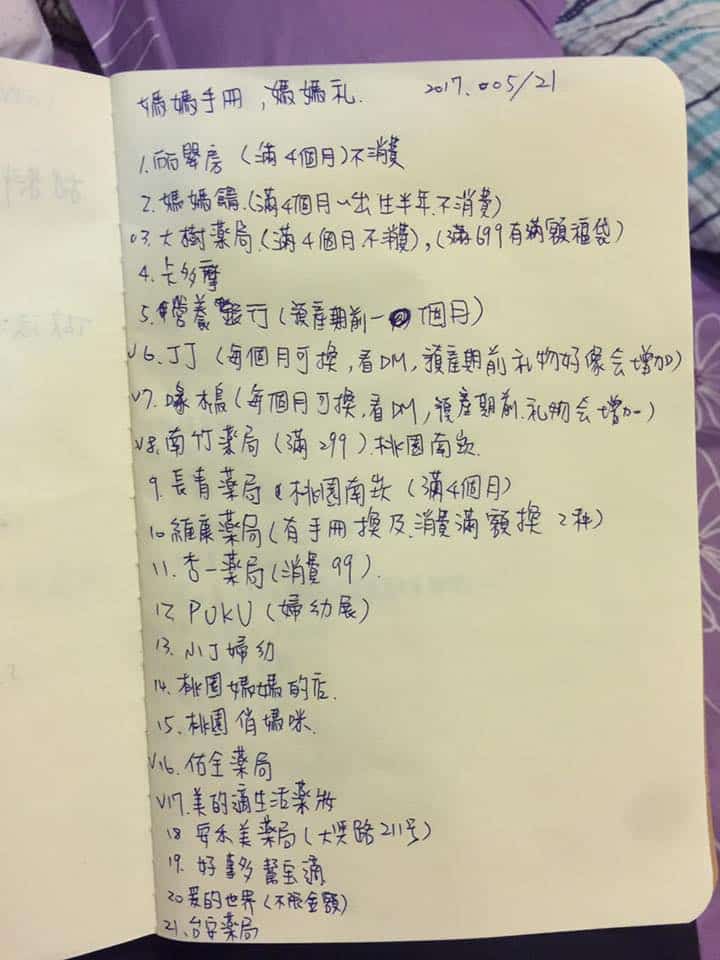 媽媽手冊,媽媽礼. 2017.005/21
1.丽嬰房(滿4個月)不消費
2.媽媽餵.(滿4個月~出生半年不消費)
03.大樹藥局.(滿4個月不消費),(滿699有滿額福袋)
4.卡多摩
5.營養銀行(預產期前一個月)
v6.丁丁(每個月可換,看DM,預產期前礼物好像会增加)
v7.喙木鳥(每個月可換,看DM,預產期前.礼物会增加)
v8.南竹藥局(滿299).桃園南崁.
9.長青藥局 桃園南崁(滿4個月)
10.維康藥局(有手冊換及.消費滿額換2種)
11.杏一藥局(消費99).
12.PUKU(婦幼展)
13.小丁婦幼
14.桃園媽媽的店.
15.桃園俏媽咪.
v16.佑全藥局
v17.美的適生活藥妝
18安禾美藥局(大興路211号)
19.好多幫宝適
20爱的世界(不限金額)
21.台安藥局